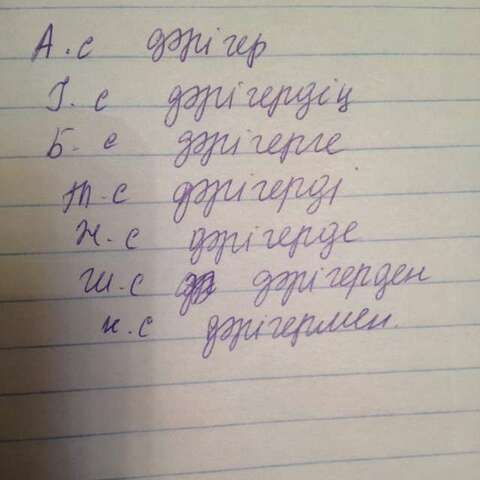 А.с дәрігер
І.с дәрігердің
Б.с дәрігерге
Т.с дәрігерді
Ж.с дәрігерде
Ш.с дә дәрігерден
к.с дәрігермен.